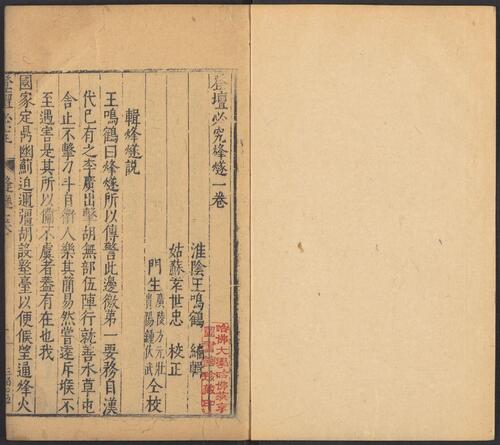 登壇必究烽燧一卷
淮陰王鳴鶴 編輯
姑蘇 世忠 校正
門生廣陵方元壯
貴陽鍾伏武仝校
輯烽燧説
王鳴鶴曰烽燧所以傳警此邊徼第一要務自漢
代已有之李廣出擊胡無部伍陣行就善水草屯
舎止不擊刀斗自衞人樂其簡易然嘗逺斥堠不
至遇害是其所以備不虞者葢有在也我
國家定鼎幽薊迫邇疆胡設墪臺以便候望通烽火
登壇必究
烽燧 卷
哈佛大學哈佛燕京
圖書館珍藏印